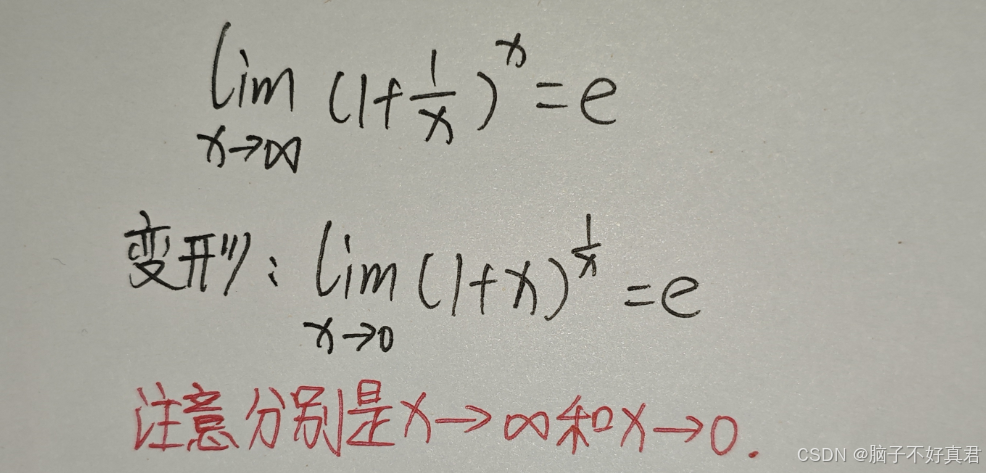 lim (1+1/x)^x = e
x→∞
变形: lim (1+x)^(1/x) = e
x→0
注意分别是x→∞和x→0.
CSDN @脑子不好真君